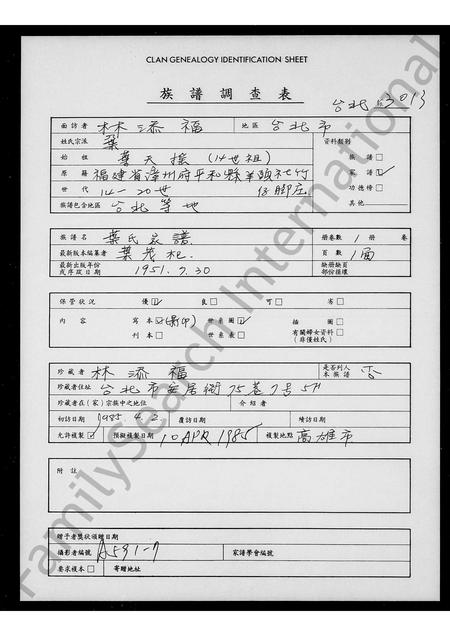 CLAN GENEALOGY IDENTIFICATION SHEET
族譜調查表
台北 53013
面訪者 林添福 地區 台北市
姓氏宗派 葉 資料類別
始祖 葉天接 (14世祖) 族譜□
原籍 福建省漳州府平和縣 家譜☑
世代 14-20世 功德榜□
族譜包含地區 台北等地 其他
族譜名 葉氏家譜 冊卷數 1 冊 卷
最新版本編纂者 葉茂杞 頁數 1面
最新出版年份 或序跋日期 1951.7.30 缺冊缺頁 部份損壞
保管狀況 優☑ 良□ 可□ 劣□
內容 寫本☑(影印) 世系圖☑ 插圖□
刊本□ 世系表□ 有關婦女資料□ (非僅姓氏)
珍藏者 林添福 是否列入 本族譜 否
珍藏者住址 台北市安居街75巷7号5F
珍藏者在(家)宗族中之地位 介紹者
初訪日期 1985.4.2. 覆訪日期 續訪日期
允許複製☑ 預擬複製日期 10 APR 1985 複製地點 高雄市
附註
贈予者獎狀頒贈日期
攝影者編號 A591-7 家譜學會編號
要求複本□ 寄贈地址
FamilySearch International